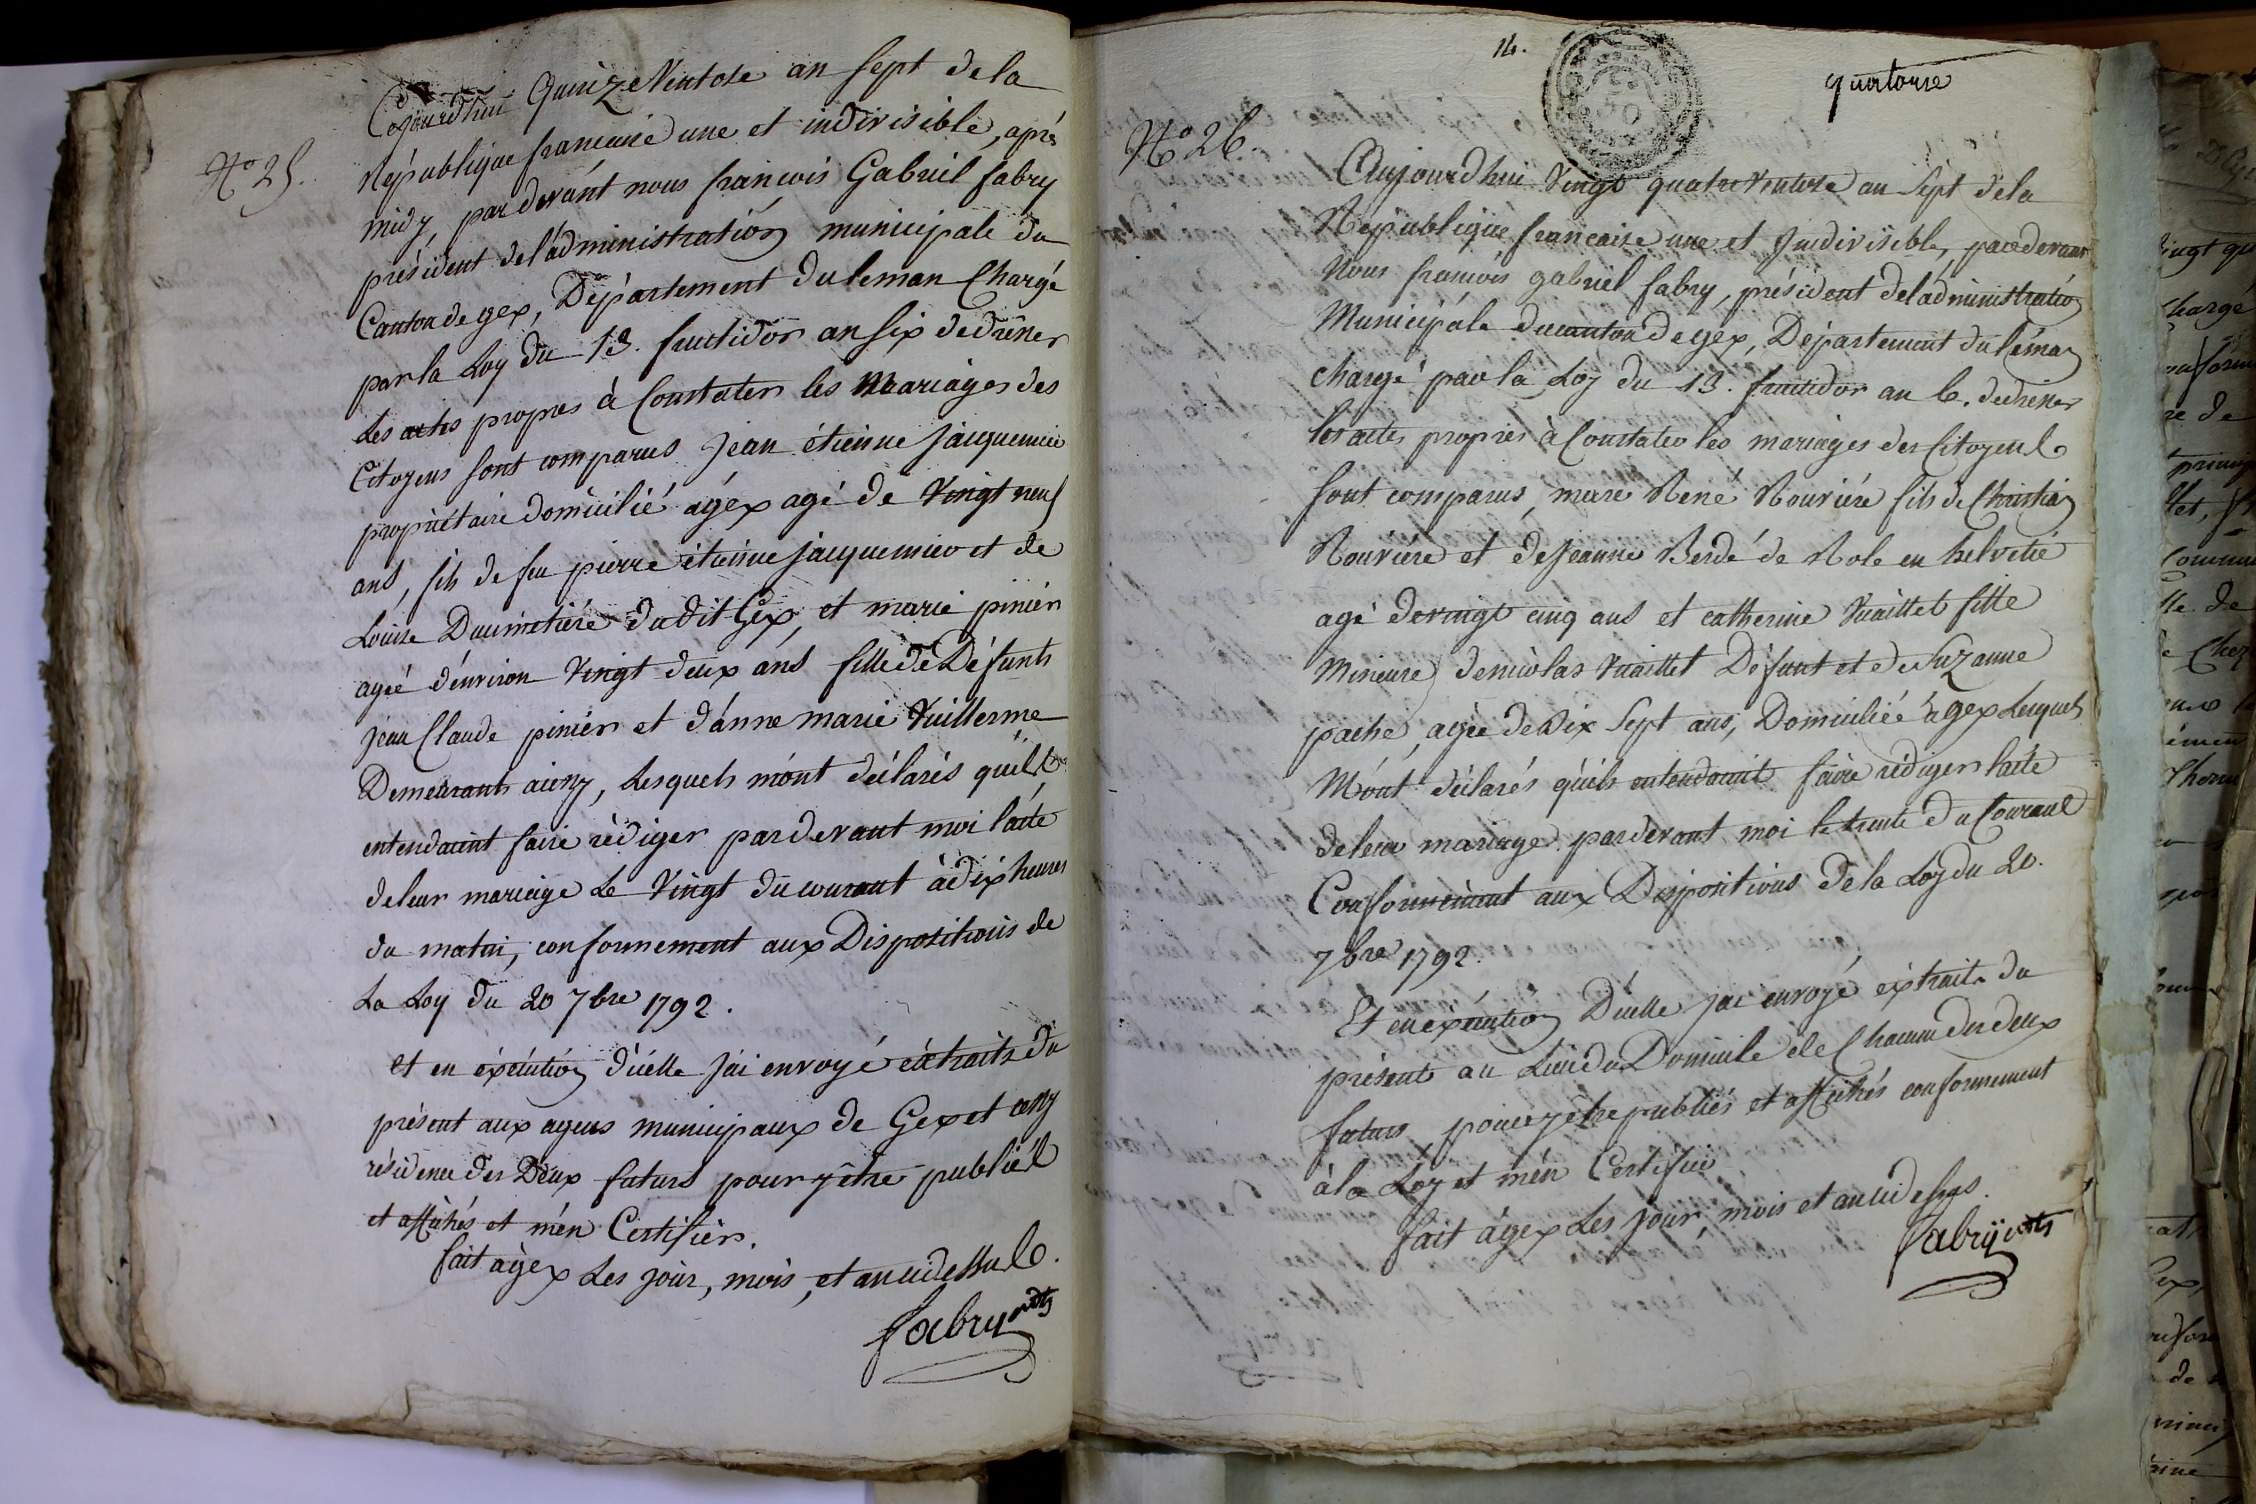 N.o 25.
Cejourdhui Quinze Ventose an sept de la
République francaise une et indivisible, aprés
midy, pardevant nous francois Gabriel fabry
président de l'administration municipale du
Canton de gex, Département du leman Chargé
par la Loy du 13. fructidor an six de dréser
Les actes propres à Constater les Mariages des
Citoyens sont comparus Jean étienne Jacquemier
propriétaire domicilié à gex agé de Vingt neuf
ans, fils de feu pierre étienne jacquemier et de
Louise Dumetiére dudit Gex, et marie pinier
agée d'environ Vingt deux ans fille de Défunts
jean Claude pinier et d'anne marie Vuillerme
Demeurants, Lesquels m'ont déclarés qu'ils
entendaint faire rédiger pardevant moi l'acte
de leur mariage Le Vingt du courant à dix heures
du matin, conformement aux Dispositions de
La Loy du 20 7bre 1792.
et en éxécution d'icelle j'ai envoyé éxtraits du
présent aux agens municipaux de Gex et
résidence des Deux futurs pour y être publiés
et affichés et m'en Certifier.
fait à gex Les jour, mois, et an cidessus.
fabry pdt
14.
quatorze
N.o 26.
Aujourdhui Vingt quatre Ventose an Sept de la
République francaise une et Indivisible, pardevant
Nous francois gabriel fabry, président de l'administration
Municipale du canton de gex, Département du léman
chargé par la Loy du 13. fructidor an 6. de dréser
les actes propres à Constater les mariages des Citoyens
sont comparus, marc René Rouviére fils de Christian
Rouviére et de Jeanne Berdé de Role en helvetie
agé de vingt cinq ans et catherine Vuaillet fille
Mineure de nicolas Vuaillet Défunt et de Suzanne
pache, agée de Dix Sept ans, Domiciliée à gex Lesquels
M'ont déclarés qu'ils entendoint faire rédiger l'acte
de leur mariage pardevant moi le trente du Courant
Conformément aux Dispositions de la Loy du 20.
7bre 1792.
Et en éxécution D'icelle j'ai envoyé éxtraits du
présent au Lieu du Domicile de Chacun des deux
futurs pour y être publiés et affichés conformement
à la Loy et m'en Certifier
fait à gex Les jour, mois et an cidessus.
fabry pdt